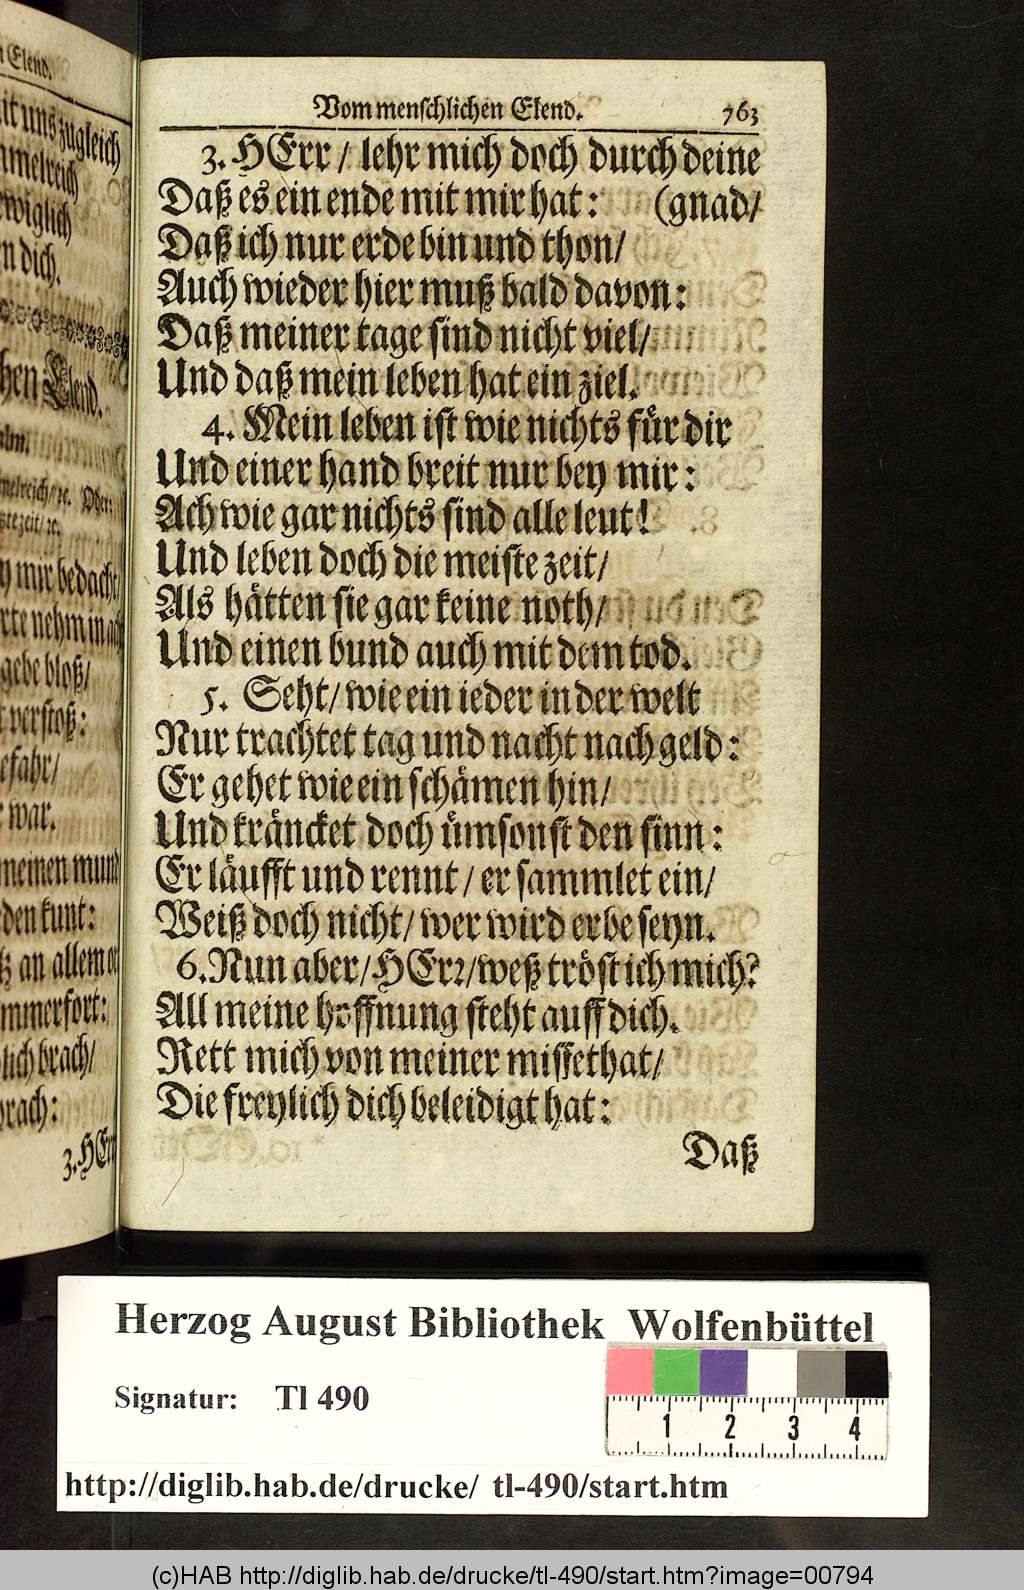 n Elend.
it uns zugleich
melreich
wiglich
n dich.
hen Elend.
alm.
melreich/ ıc. Oder:
te zeit/ ıc.
mir bedacht
rte nehm in
gebe bloß/
verstoß:
efahr/
war.
meinen mund
den kunt:
an allem
mmerfort:
lich brach/
brach:
3. HErr
Vom menschlichen Elend. 763
3. HErr / lehr mich doch durch deine
Daß es ein ende mit mir hat: (gnad/
Daß ich nur erde bin und thon/
Auch wieder hier muß bald davon:
Daß meiner tage sind nicht viel/
Und daß mein leben hat ein ziel.
4. Mein leben ist wie nichts für dir
Und einer hand breit nur bey mir:
Ach wie gar nichts sind alle leut!
Und leben doch die meiste zeit/
Als hätten sie gar keine noth/
Und einen bund auch mit dem tod.
5. Seht/ wie ein ieder in der welt
Nur trachtet tag und nacht nach geld:
Er gehet wie ein schämen hin/
Und kräncket doch ümsonst den sinn:
Er läufft und rennt / er sammlet ein/
Weiß doch nicht/ wer wird erbe seyn.
6. Nun aber/ HErr/ weß tröst ich mich?
All meine hoffnung steht auff dich.
Rett mich von meiner missethat/
Die freylich dich beleidigt hat:
Daß
Herzog August Bibliothek Wolfenbüttel
Signatur: Tl 490
1 2 3 4
http://diglib.hab.de/drucke/ tl-490/start.htm
(c)HAB http://diglib.hab.de/drucke/tl-490/start.htm?image=00794